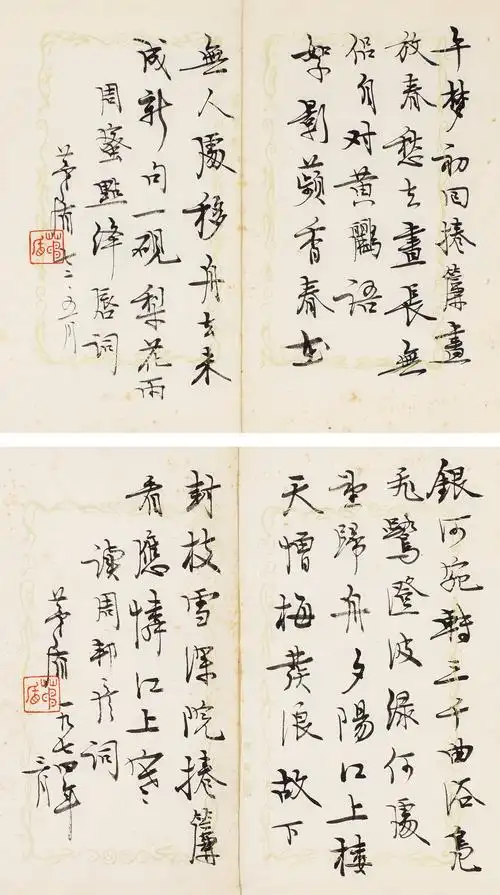 午梦初回捲簾盡
放春愁去晝長無
侣自对黄鸝語
絮影蘋香春在
無人處移舟去未
成新句一砚梨花雨
周蜜點绛唇词
茅盾 七二·五月
茅盾
銀河宛轉三千曲浴鳧
飛鷺澄波緑何處
望歸舟夕陽江上樓
天憎梅發浪故下
封枝雪深院捲簾
看應憐江上寒
读周邦彦词
茅盾 一九七四年
三月
茅盾